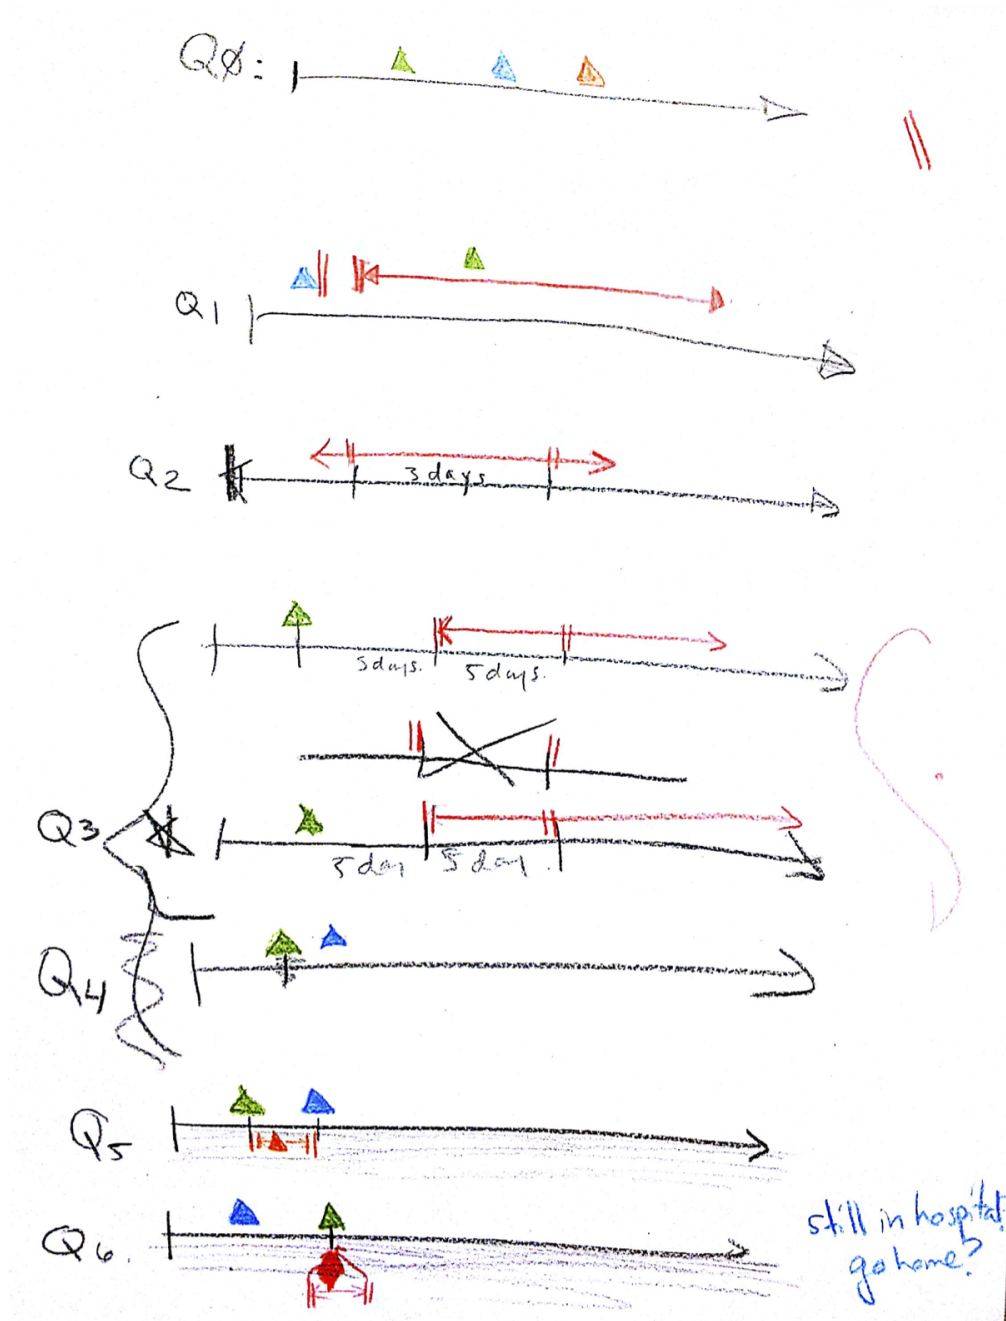 QØ:
Q1
Q2
3 days
5 days.
5 days.
Q3
5 day
5 day.
Q4
Q5
Q6.
still in hospital?
go home?